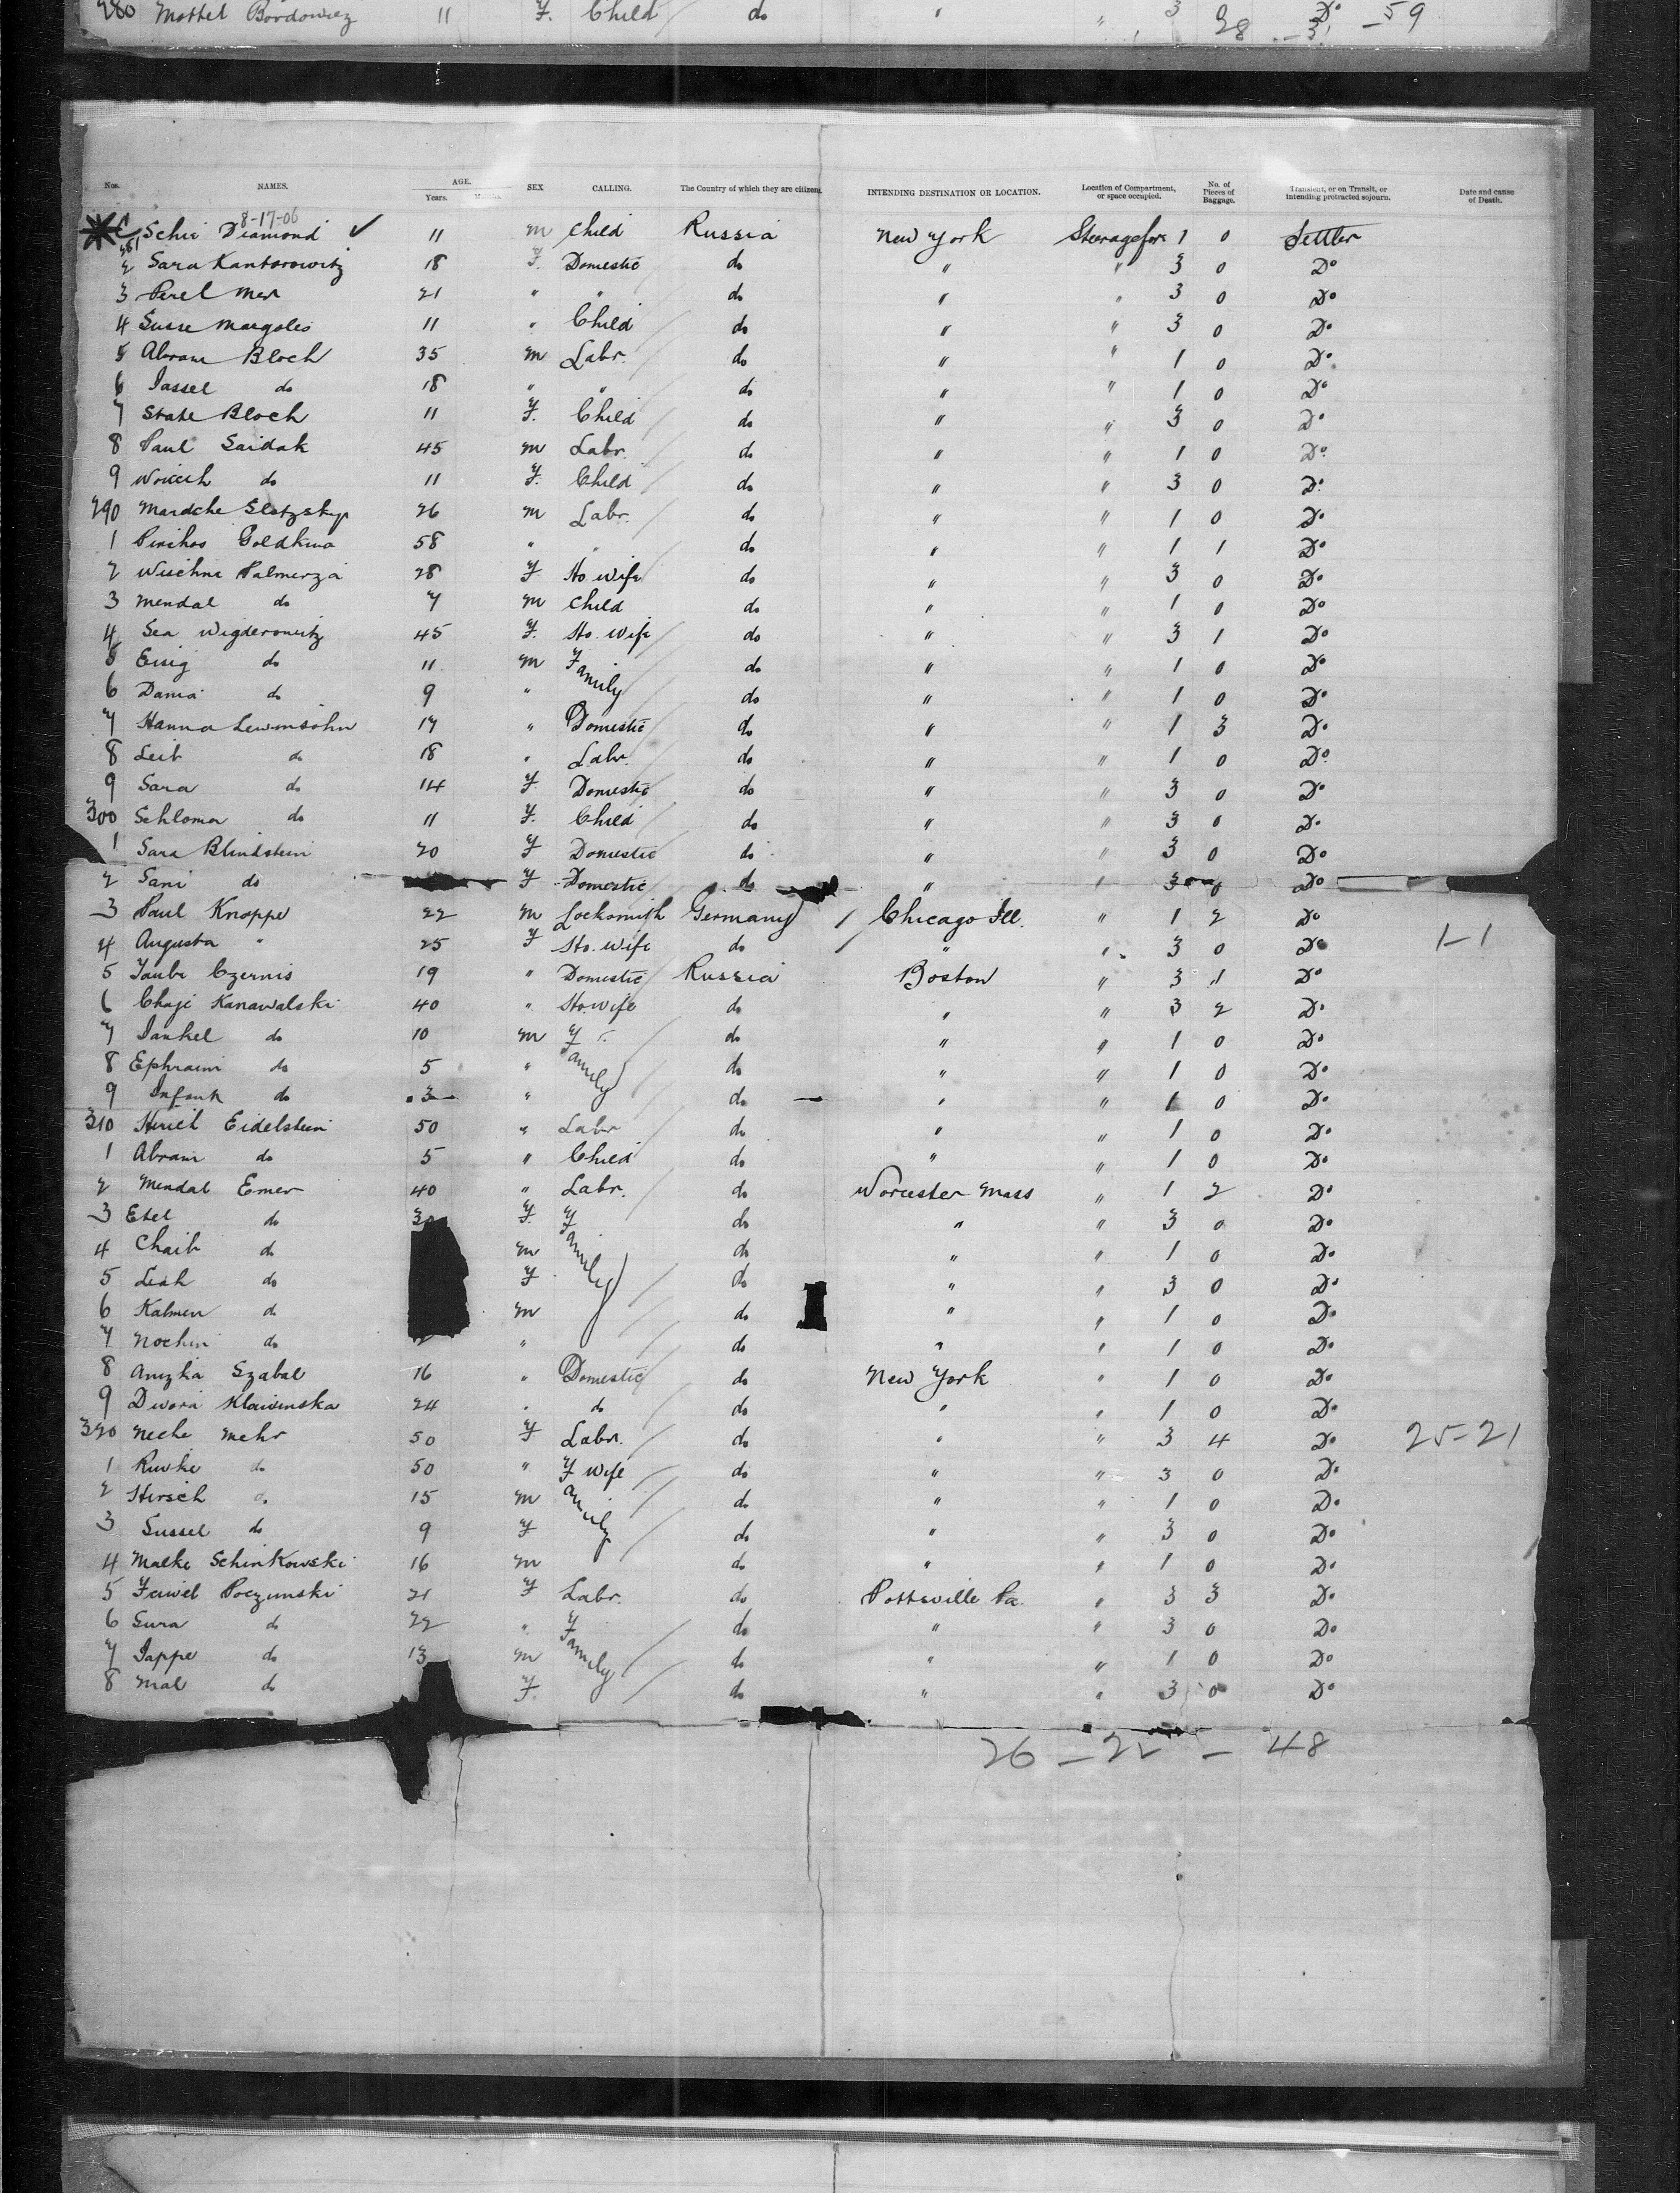 280 Mottel Bordowicz 11 F. Child do " " 3 Do
28 - 31 - 59
Nos. NAMES. AGE. Years. SEX CALLING. The Country of which they are citizens. INTENDING DESTINATION OR LOCATION. Location of Compartment, or space occupied. No. of Pieces of Baggage. Transient, or on Transit, or intending protracted sojourn. Date and cause of Death.
8-17-06
281 Schie Diamond ✓ 11 m Child Russia New York Steerage for 1 0 Settler
2 Sara Kantorowitz 18 F. Domestic do " " 3 0 Do
3 Perel Mer 21 " " do " " 3 0 Do
4 Susse Margolis 11 " Child do " " 3 0 Do
5 Abram Bloch 35 m Labr. do " " 1 0 Do
6 Jassel do 18 " " do " " 1 0 Do
7 State Bloch 11 F. Child do " " 3 0 Do
8 Paul Saidak 45 m Labr. do " " 1 0 Do
9 Woicich do 11 F. Child do " " 3 0 Do
290 Mardche Slotzskys 26 m Labr. do " " 1 0 Do
1 Pinchos Goldkina 58 " " do " " 1 1 Do
2 Wischne Palmerza 28 F Ho. wife do " " 3 0 Do
3 Mendal do 7 m Child do " " 1 0 Do
4 Sea Wigderowitz 45 F. Ho. wife do " " 3 1 Do
5 Eisig do 11 m Family do " " 1 0 Do
6 Dania do 9 " do " " 1 0 Do
7 Hanna Lewinsohn 17 " Domestic do " " 1 3 Do
8 Leib do 18 " Labr. do " " 1 0 Do
9 Sara do 14 F Domestic do " " 3 0 Do
300 Schloma do 11 F. Child do " " 3 0 Do
1 Sara Blindstein 20 F Domestic do " " 3 0 Do
2 Sani do F Domestic do " " 3 0 Do
3 Paul Knoppe 22 m Locksmith Germany Chicago Ill. " 1 2 Do
4 Augusta " 25 F Ho. wife do " " 3 0 Do 1-1
5 Taube Czernis 19 " Domestic Russia Boston " 3 1 Do
6 Chaje Kanawalski 40 " Ho. wife do " " 3 2 Do
7 Jankel do 10 m Family do " " 1 0 Do
8 Ephraim do 5 " do " " 1 0 Do
9 Infant do 3 " do " " 1 0 Do
310 Hirsch Eidelstein 50 " Labr do " " 1 0 Do
1 Abram do 5 " Child do " " 1 0 Do
2 Mendal Emer 40 " Labr. do Worcester Mass " 1 2 Do
3 Etel do F. Family do " " 3 0 Do
4 Chaib do m do " " 1 0 Do
5 Leah do F do " " 3 0 Do
6 Kalmen do m do " " 1 0 Do
7 Nochim do " do " " 1 0 Do
8 Anizka Szabal 16 " Domestic do New York " 1 0 Do
9 Dwora Klawinska 24 " do do " " 1 0 Do
320 Neche Mehr 50 F Labr. do " " 3 4 Do 25-21
1 Riwke do 50 " F wife do " " 3 0 Do
2 Hirsch do 15 m amily do " " 1 0 Do
3 Sussel do 9 F do " " 3 0 Do
4 Malke Schinkowski 16 m do " " 1 0 Do
5 Feiwel Poczunski 21 F Labr. do Pottsville Pa. " 3 3 Do
6 Sura do 22 " Family do " " 3 0 Do
7 Jappe do 13 m do " " 1 0 Do
8 Mal do F. do " " 3 0 Do
26 - 22 - 48